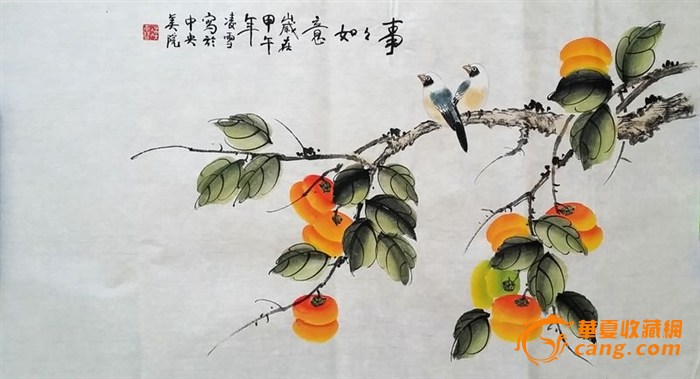 事々如意
歲在
甲午
年
凌雪
寫於
中央
美院
華夏收藏網
cang.com